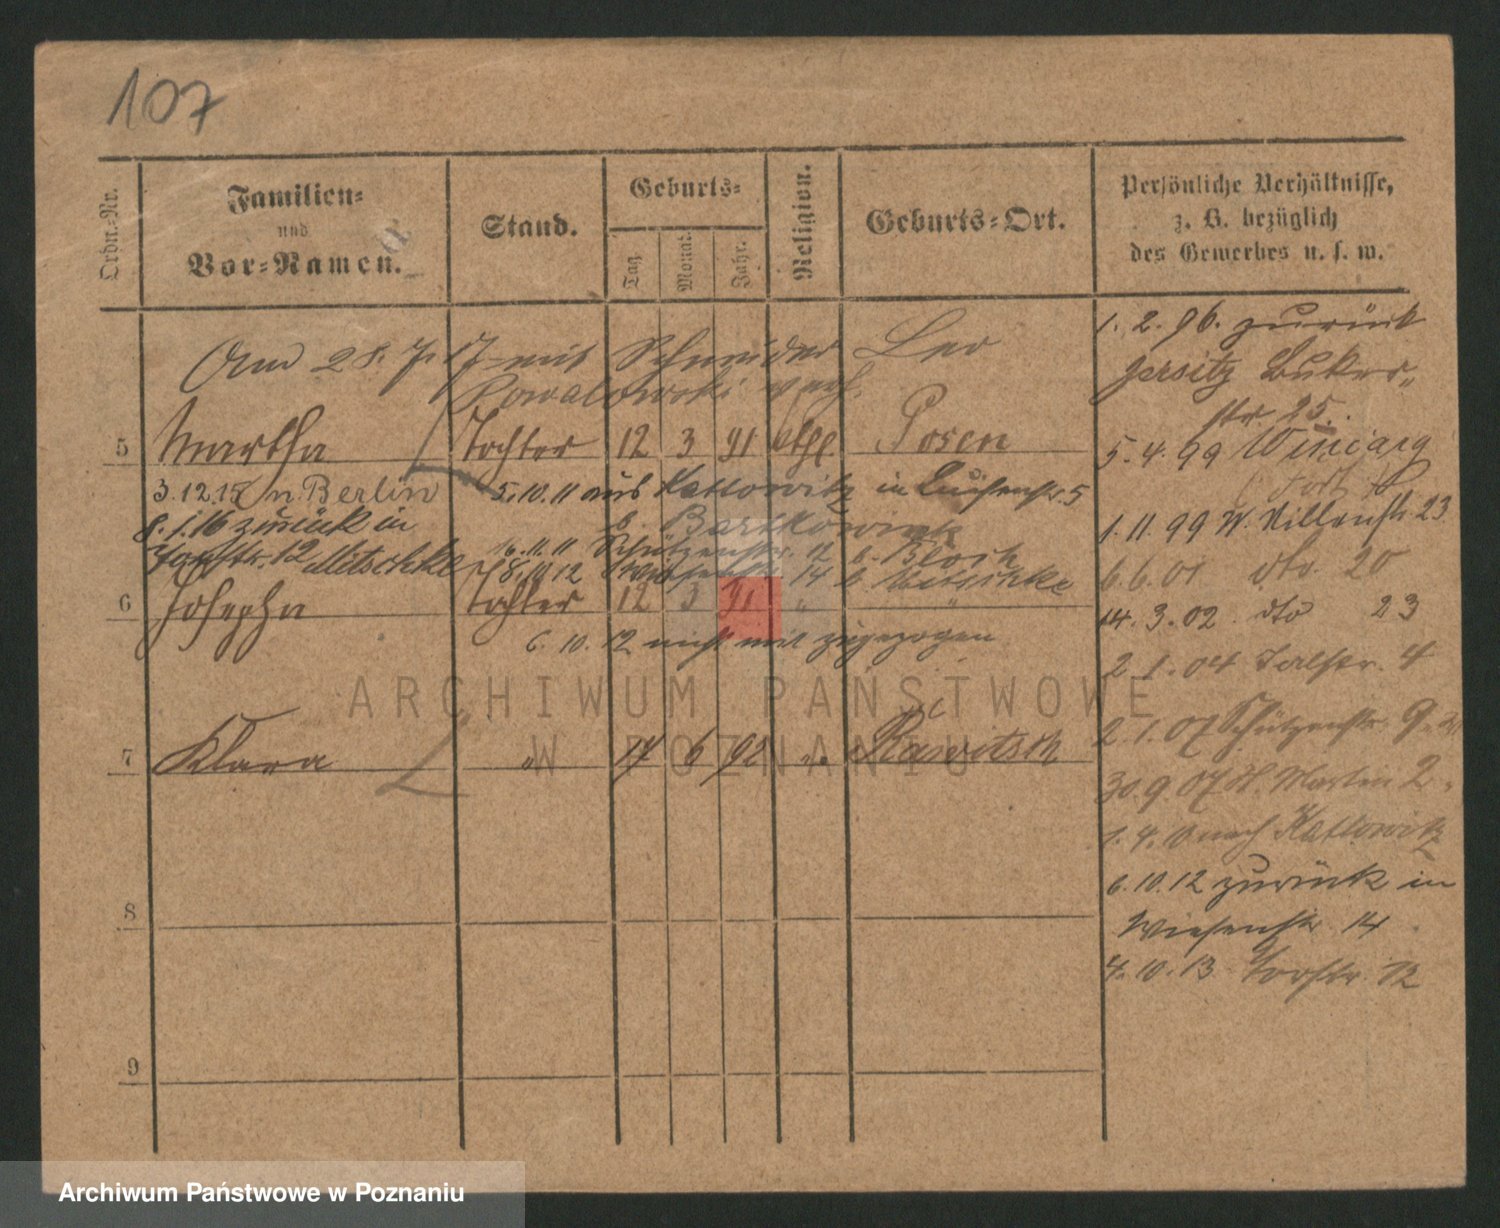 107
Ordn.-Nr.
Familien-
und
Vor-Namen.
Stand.
Geburts-
Tag.
Monat.
Jahr.
Religion.
Geburts-Ort.
Persönliche Verhältnisse,
z. B. bezüglich
des Gewerbes u. s. w.
Am 28. 7. 17 mit Schneider Leo
Kowalowski verh.
5 Martha Tochter 12 3 91 kthl. Posen
3.12.15 n. Berlin
8.1.16 zurück in
Torstr. 12 Mitschke
5.10.11 aus Kattowitz in Luisenstr. 5
b. Bartkowiak
16.11.11 Schützenstr. 11 b. Bloch
8.10.12 Wiesenstr. 14 b. Mitschke
6 Josepha Tochter 12 3 91 "
6.10.12 nicht mit zugezogen
7 Klara " 17 6 92 " Rawitsch
8
9
1.2.96. zurück
Jersitz Buker-
str. 25.
5.4.99 Winiary
1.11.99 W. Villenstr. 23
6.6.01 dto. 20
14.3.02. dto 23
2.1.04 Talstr. 4
2.1.07 Schützenstr. 9
30.9.07 St. Martin 2
1.4.10 nach Kattowitz
6.10.12 zurück in
Wiesenstr. 14
4.10.13 Torstr. 12
ARCHIWUM PAŃSTWOWE
W POZNANIU
Archiwum Państwowe w Poznaniu